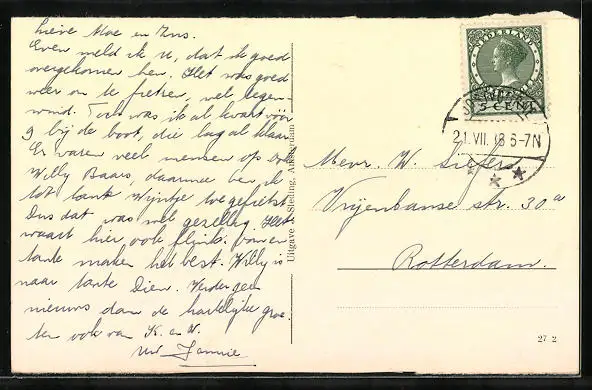 Lieve Moe en Zus.
Even meld ik u, dat ik goed
overgekomen ben. Het was goed
weer om te fietsen, wel tegen-
wind. Toch was ik al kwart vóór
9 bij de boot, die lag al klaar
Er waren veel mensen op o.a.
Willy Baars, daarmee ben ik
tot tante Wijntje toe gefietst
Dus dat was wel gezellig. Het
waait hier ook flink. Oom en
tante maken het best. Willy is
naar tante Dien. Verder geen
nieuws dan de hartelijke groe-
ten ook van K. en W.
Uw Jannie
Uitgave J. Sleding, Amsterdam
NEDERLAND
5 CENT
21.VII. 6-7N
Mevr. W. Siefers
Vrijenbanse str. 30a
Rotterdam.
27 2